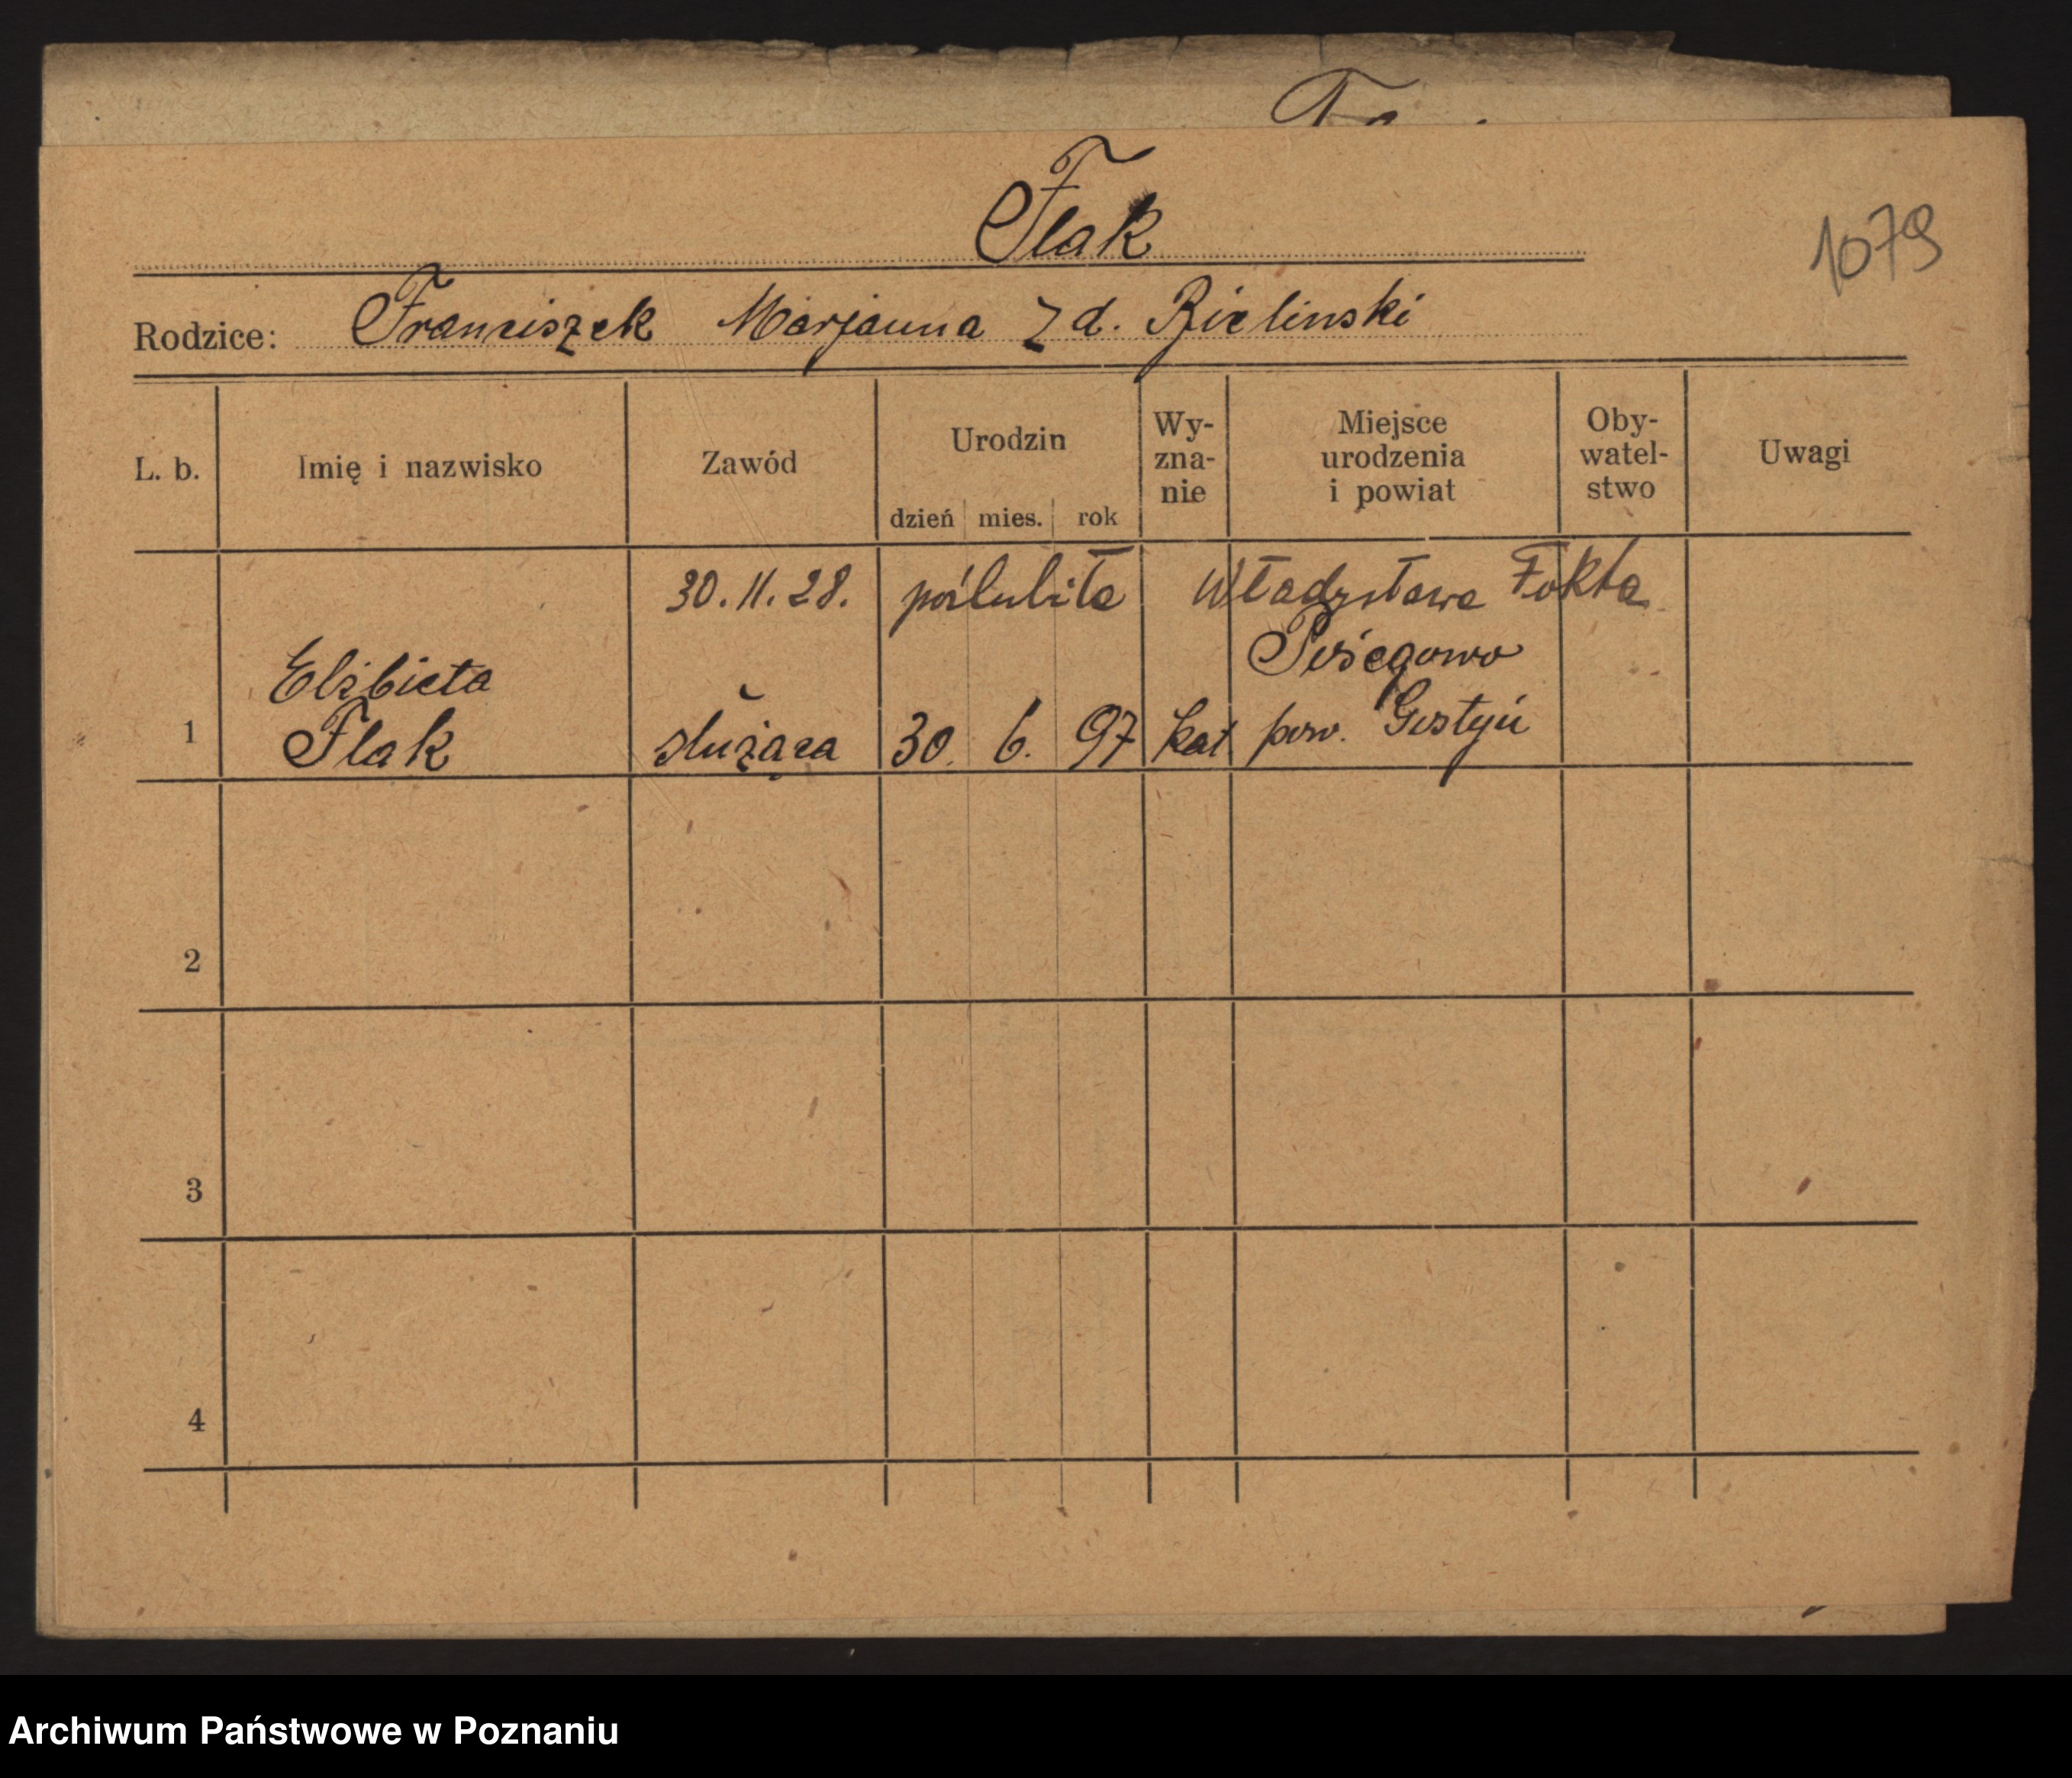 Flak
1079
Rodzice: Franciszek Marjanna z d. Bielinski
L. b. Imię i nazwisko Zawód Urodzin dzień mies. rok Wy-zna-nie Miejsce urodzenia i powiat Oby-watel-stwo Uwagi
30. 11. 28. poślubiła Władysława Fokta
Elżbieta Pożegowo
1 Flak służąca 30. 6. 97 kat pow. Gostyń
2
3
4
Archiwum Państwowe w Poznaniu